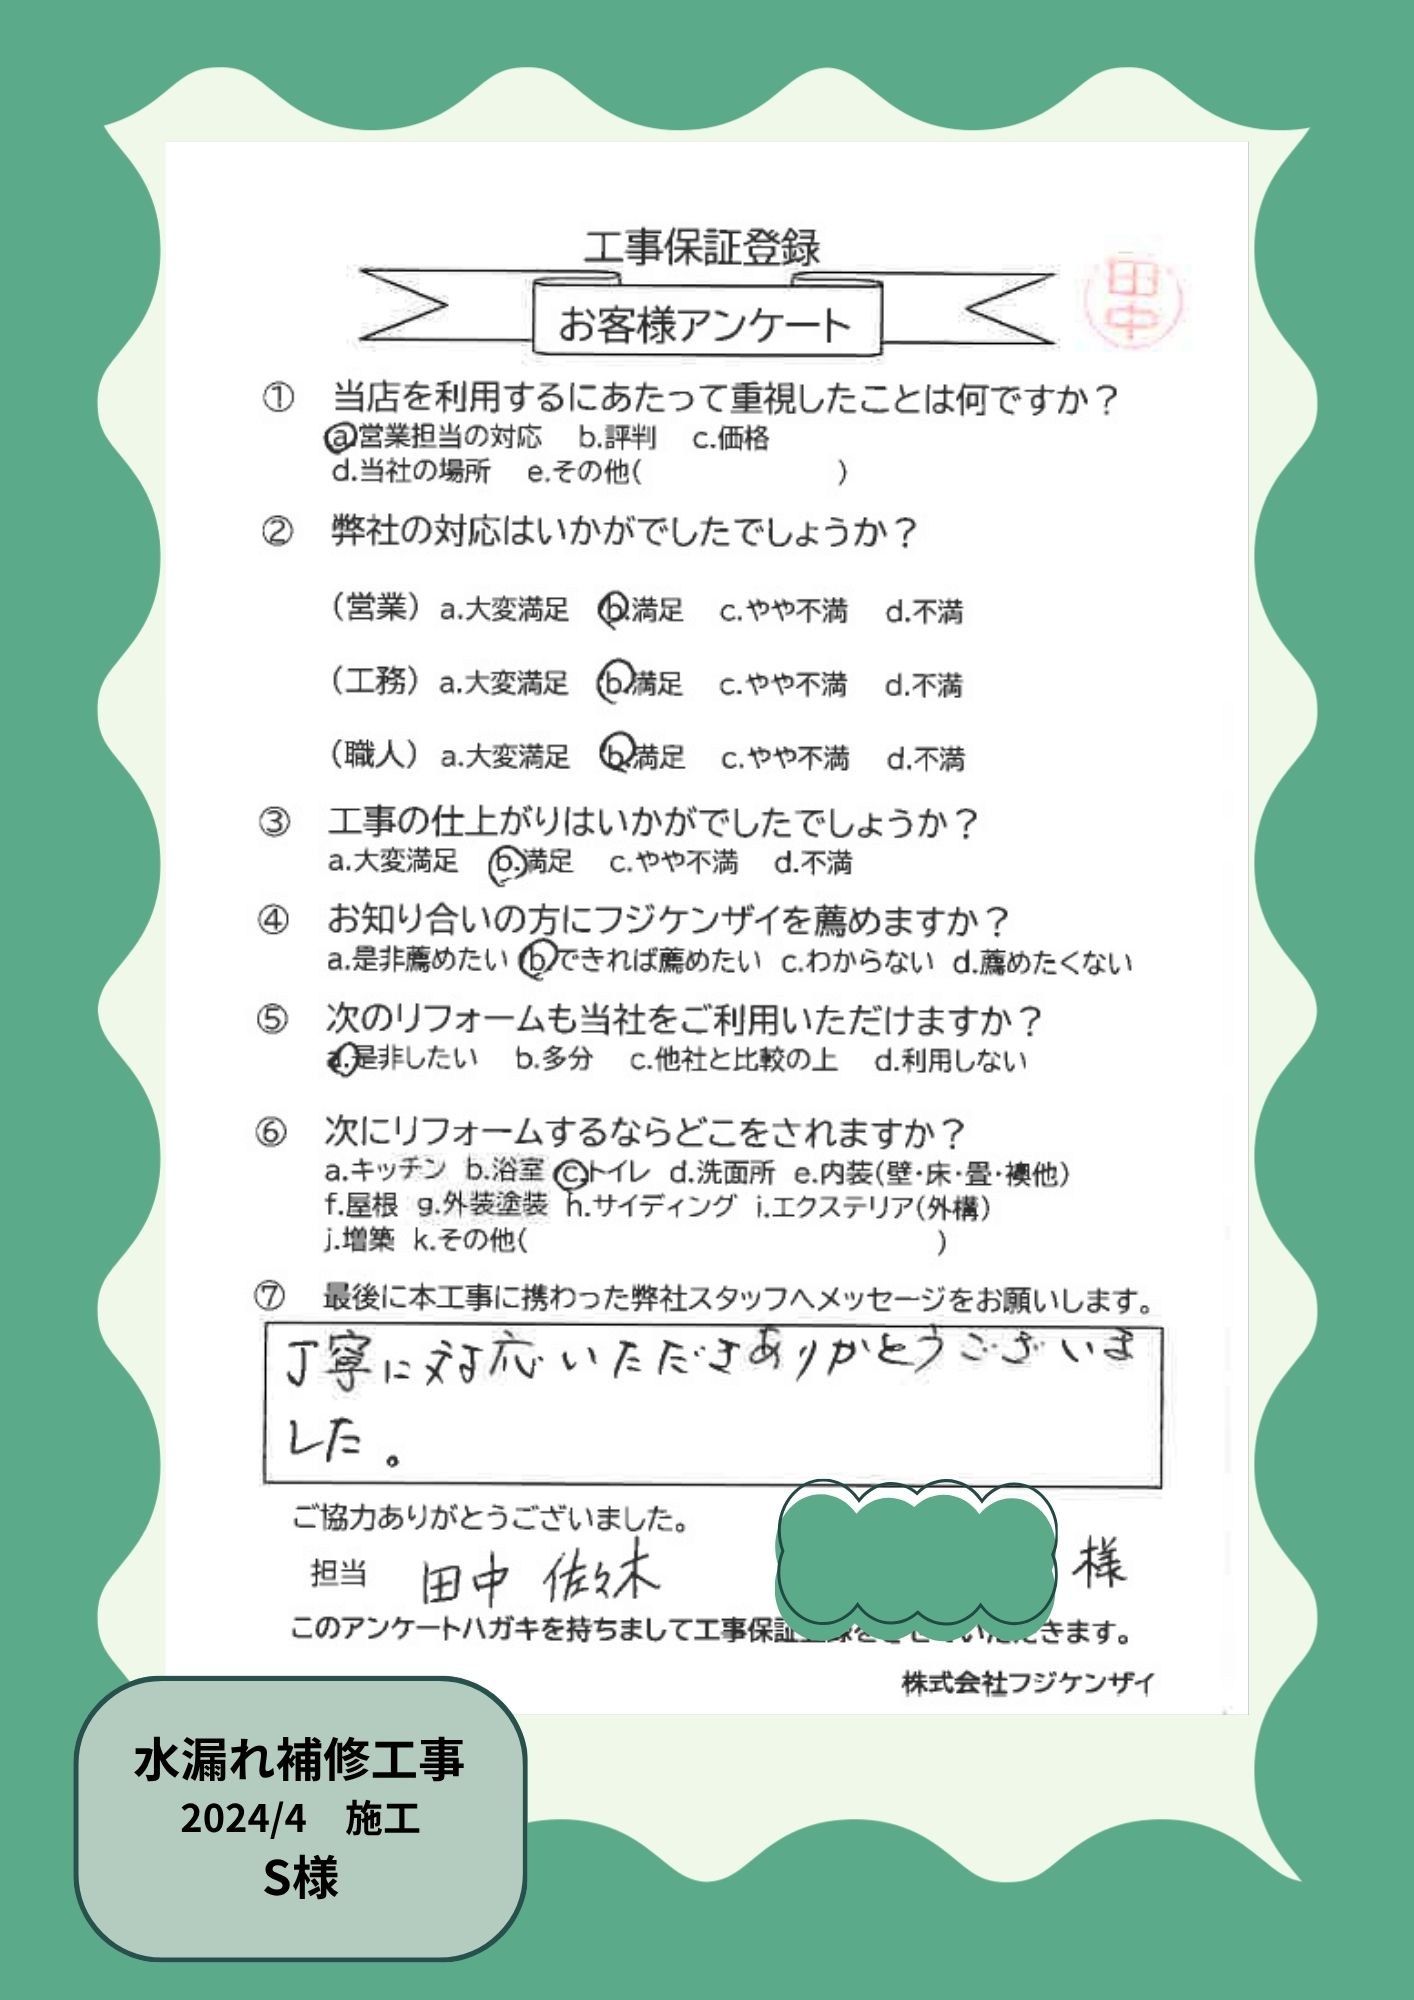 工事保証登録
お客様アンケート
田中
① 当店を利用するにあたって重視したことは何ですか？
a.営業担当の対応 b.評判 c.価格
d.当社の場所 e.その他( )
② 弊社の対応はいかがでしたでしょうか？
（営業）a.大変満足 b.満足 c.やや不満 d.不満
（工務）a.大変満足 b.満足 c.やや不満 d.不満
（職人）a.大変満足 b.満足 c.やや不満 d.不満
③ 工事の仕上がりはいかがでしたでしょうか？
a.大変満足 b.満足 c.やや不満 d.不満
④ お知り合いの方にフジケンザイを薦めますか？
a.是非薦めたい b.できれば薦めたい c.わからない d.薦めたくない
⑤ 次のリフォームも当社をご利用いただけますか？
a.是非したい b.多分 c.他社と比較の上 d.利用しない
⑥ 次にリフォームするならどこをされますか？
a.キッチン b.浴室 c.トイレ d.洗面所 e.内装(壁・床・畳・襖他)
f.屋根 g.外装塗装 h.サイディング i.エクステリア(外構)
j.増築 k.その他( )
⑦ 最後に本工事に携わった弊社スタッフへメッセージをお願いします。
丁寧に対応いただきありがとうございま
した。
ご協力ありがとうございました。
担当 田中 佐々木 様
このアンケートハガキを持ちまして工事保証登録をさせていただきます。
株式会社フジケンザイ
水漏れ補修工事
2024/4 施工
S様